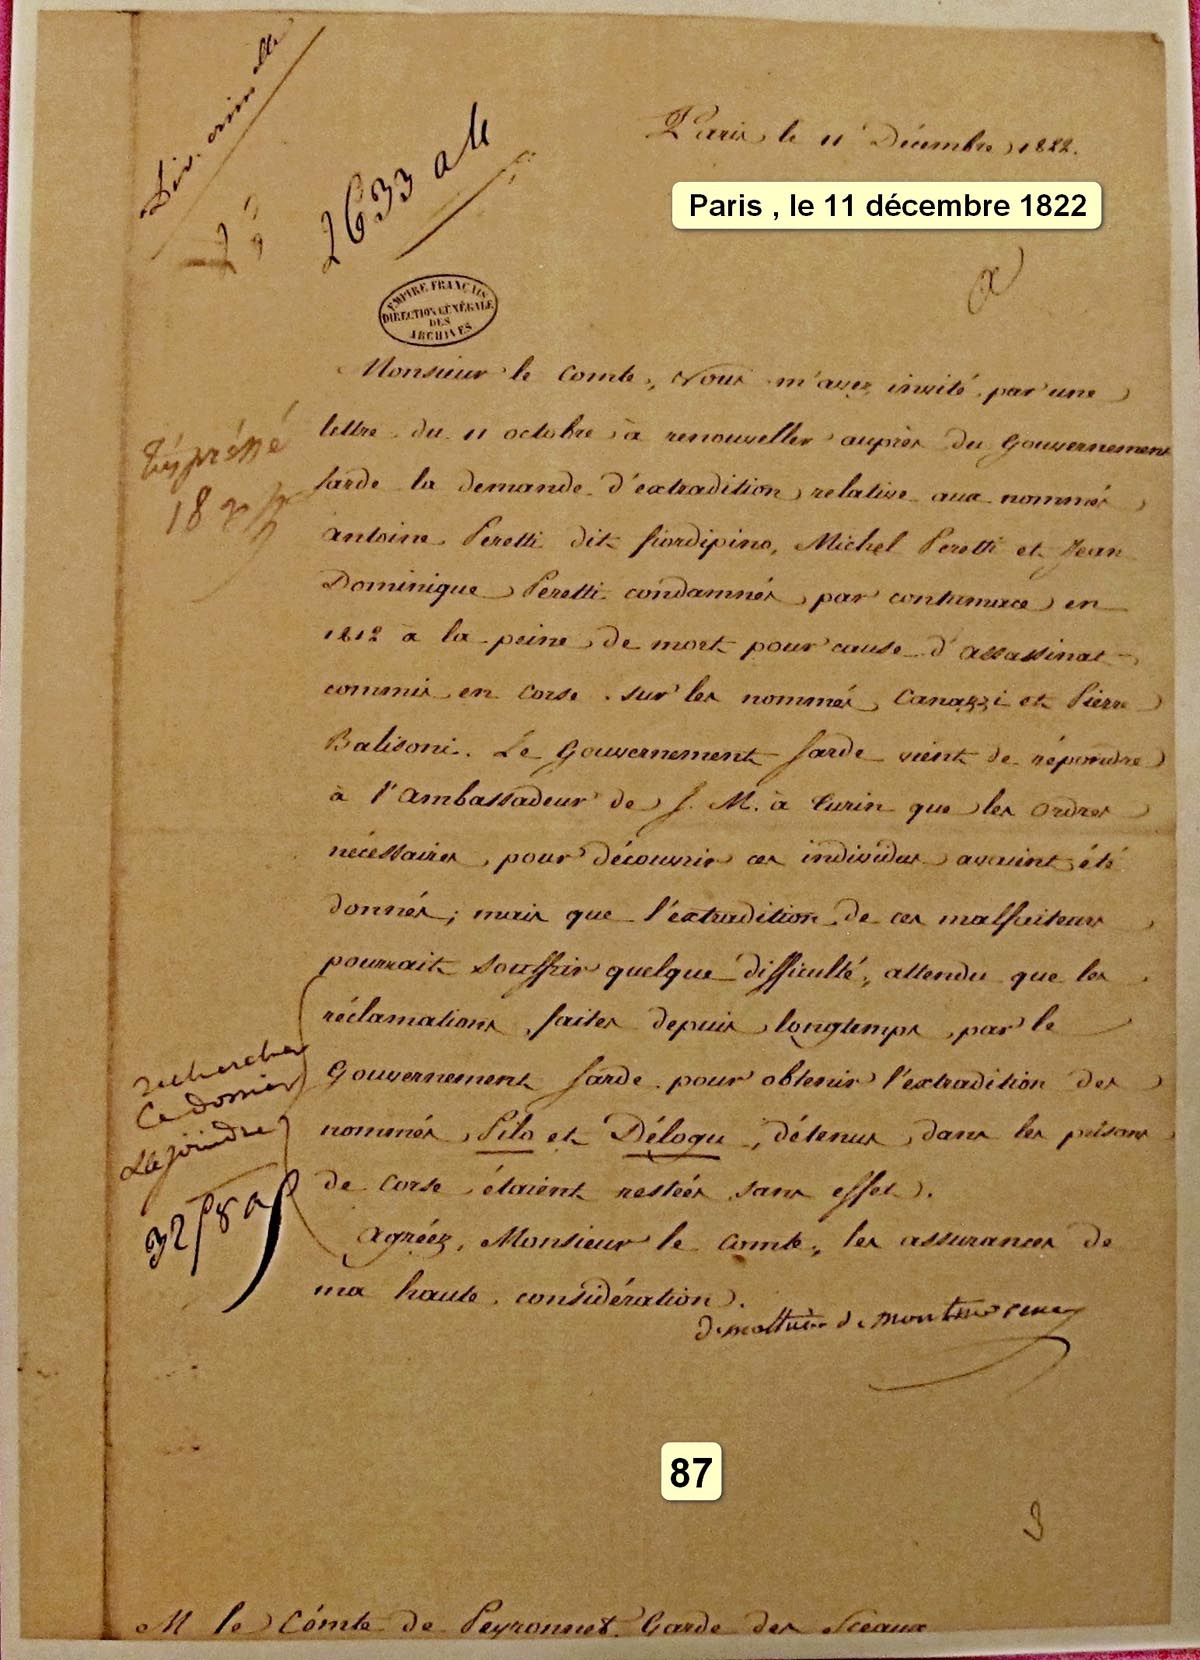 Div. crim elle
2633 a 4
Paris, le 11 Décembre 1822.
Paris , le 11 décembre 1822
EMPIRE FRANÇAIS
DIRECTION GÉNÉRALE
DES
ARCHIVES
Monsieur le Comte, Vous m'avez invité par une
lettre du 11 octobre à renouveller auprès du Gouvernement
Sarde la demande d'extradition relative aux nommés
Antoine Peretti dit fiordipino, Michel Peretti et Jean
Dominique Peretti condamnés par contumace en
1812 à la peine de mort pour cause d'assassinat
commis en Corse sur les nommés Canazzi et Pierre
Balisoni. Le Gouvernement Sarde vient de répondre
à l'Ambassadeur de S. M. à Turin que les ordres
nécessaires pour découvrir ces individus avaient été
donnés; mais que l'extradition de ces malfaiteurs
pourrait souffrir quelque difficulté, attendu que les
réclamations faites depuis longtemps par le
Gouvernement Sarde pour obtenir l'extradition des
nommés Pilo et Délogu, détenus dans les prisons
de Corse étaient restées sans effet.
Agréez, Monsieur le Comte, les assurances de
ma haute considération.
rechercher
ce dossier
le joindre
87
M le Comte de Peyronnet Garde des Sceaux